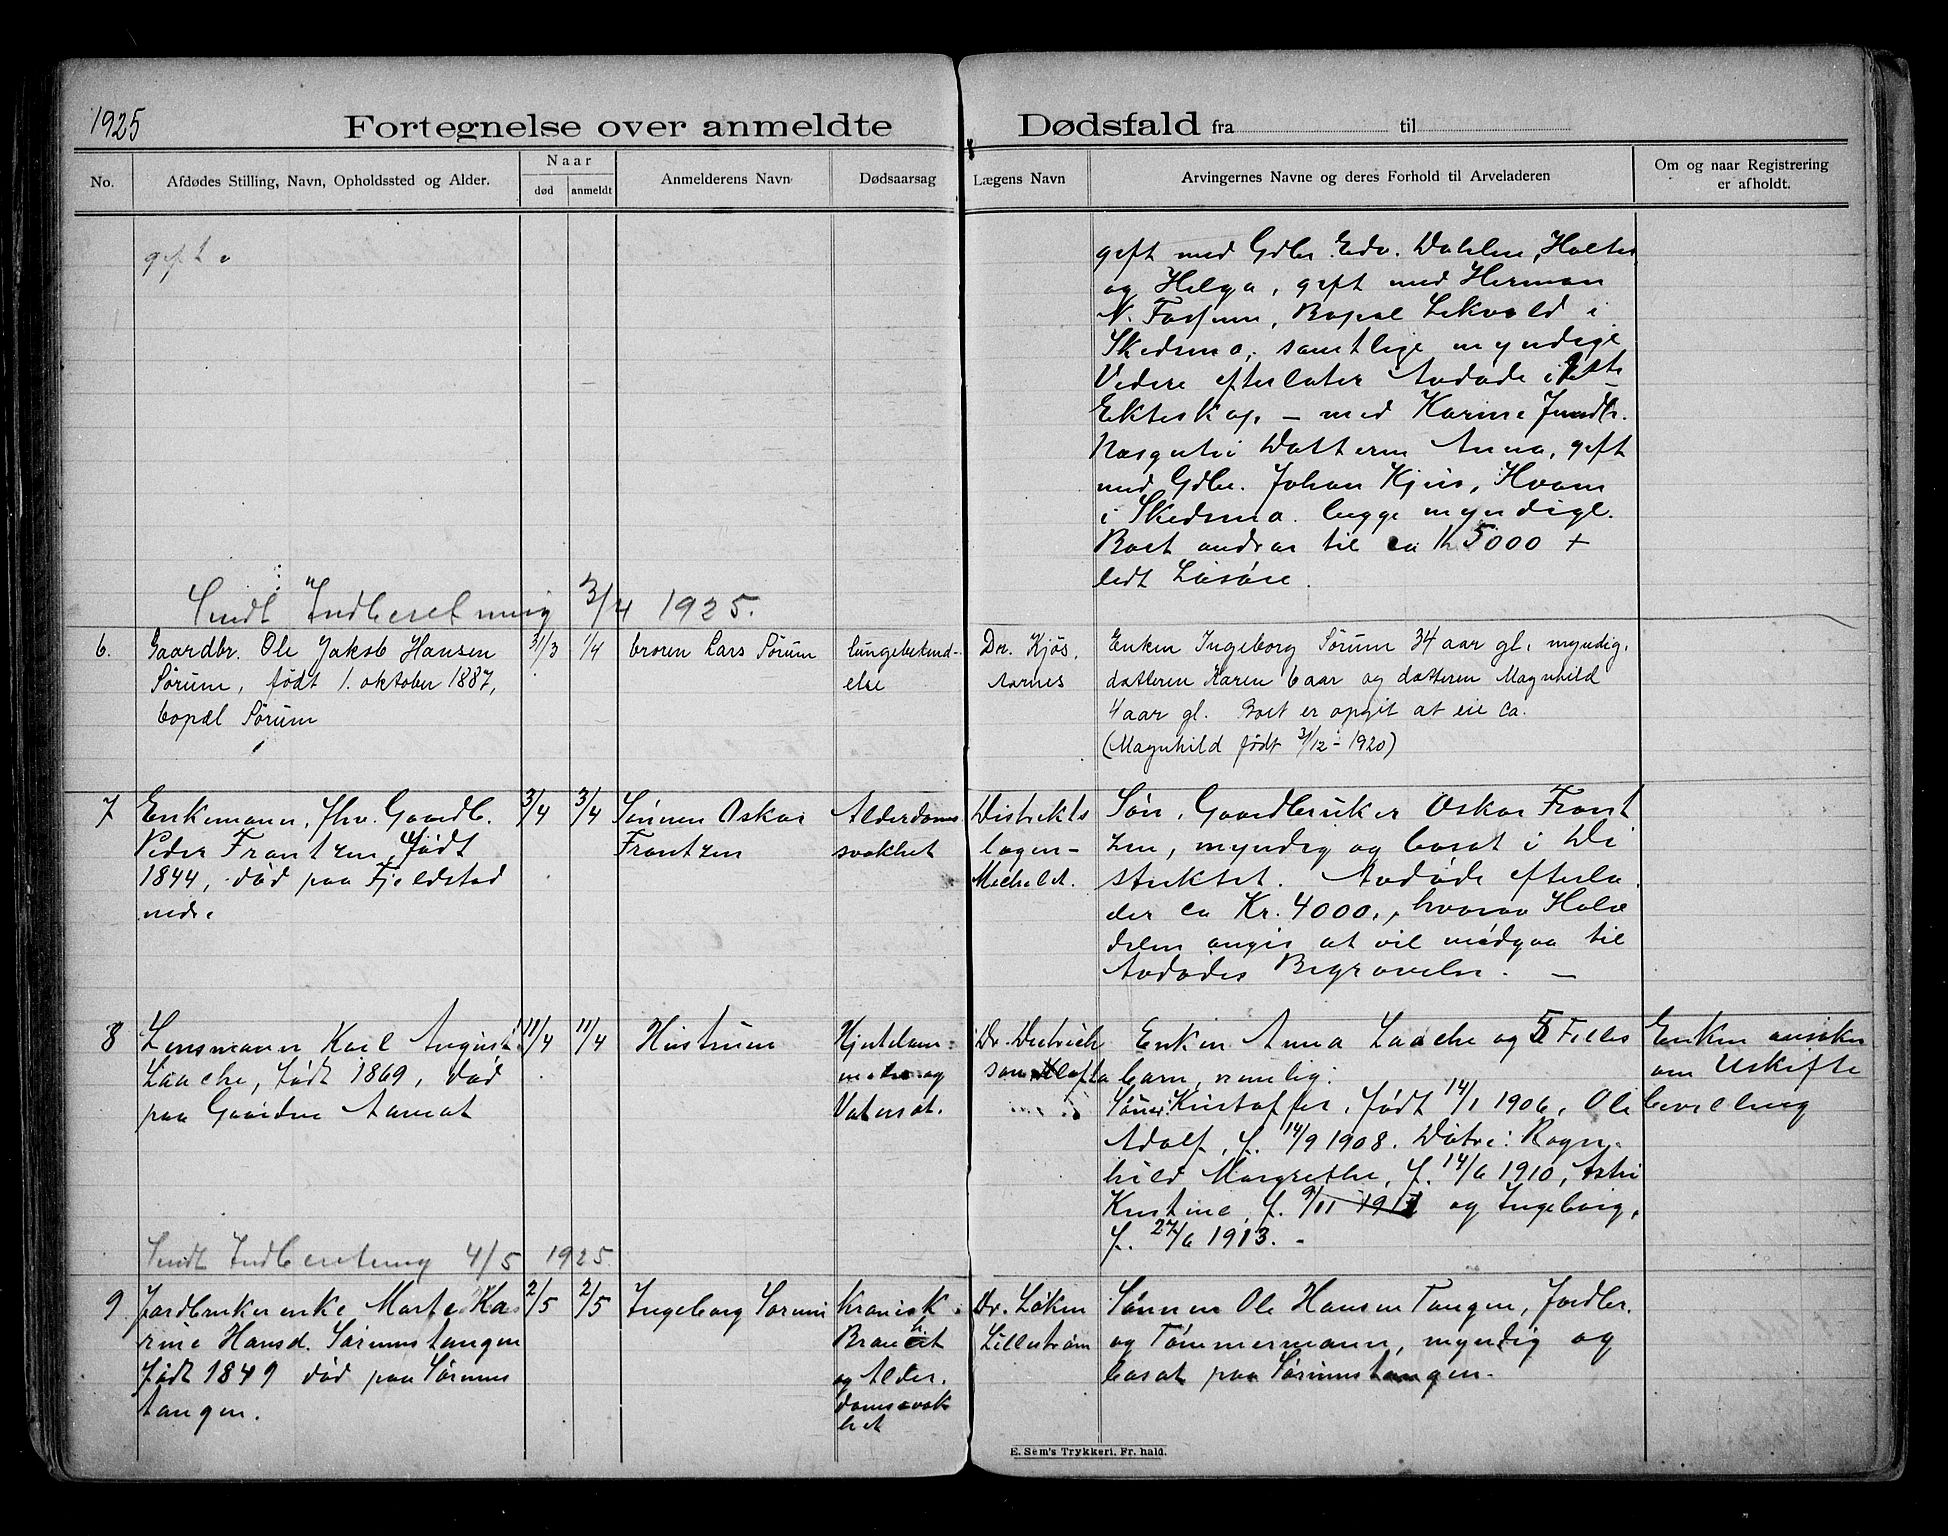 1925
Fortegnelse over anmeldte Dødsfald fra til
No.
Afdødes Stilling, Navn, Opholdssted og Alder.
Naar
død
anmeldt
Anmelderens Navn
Dødsaarsag
Lægens Navn
Arvingernes Navne og deres Forhold til Arveladeren
Om og naar Registrering
er afholdt.
gift
gift med Gdbr. Edv. Dahlen, Holter
og Helga, gift med Herman
N. Fossum, Bopæl Lekvold i
Skedsmo, samtlige myndige
Videre efterlater Avdøde i 1ste
Ekteskap – med Karine
Datteren Anna, gift
med Gdbr. Johan Kjus, Hvam
i Skedsmo. begge myndige.
Boet andrar til ca Kr 5000 +
lidt Løsøre.
Sendt Indberetning 3/4 1925.
6.
Gaardbr. Ole Jakob Hansen
Sørum, født 1. oktober 1887,
bopæl Sørum
31/3
1/4
broren Lars Sørum
lungebetænd-
else
Dr. Kjøs,
Aarnes
Enken Ingeborg Sørum 34 aar gl. myndig,
datteren Karen 6 aar og datteren Magnhild
4 aar gl. Boet er opgit at eie ca.
(Magnhild født 31/12 - 1920)
7
Enkemann, fhv. Gaardb.
Peder Frantzen, født
1844, død paa Fjeldstad
nedre
3/4
3/4
Sønnen Oskar
Frantzen
Alderdoms
svakhet
Distrikts
lægen
Michelet.
Søn, Gaardbruker Oskar Frant
zen, myndig og bosat i Di
striktet. Avdøde efterla
der ca Kr. 4000., hvorav Halv
delen angis at vil medgaa til
Avdødes Begravelse. —
8
Lensmann Karl August
Laache, født 1869, død
paa Gaarden Aamot
11/4
11/4
Hustruen
Hjertelam
melse og
Vatersot.
Dr. Dietrich
son Kløfta
Enken Anna Laache og 5 Felles
barn, nemlig:
Sønner: Kristoffer, født 14/1 1906, Ole
Adolf, f. 14/9 1908. Døtre: Ragn-
hild Margrethe, f. 14/6 1910, Astri
Kristine, f. 9/11 1911 og Ingeborg,
f. 27/6 1913. -
Enken ansøker
om Uskifte
bevilling
Sendt Indberetning 4/5 1925.
9.
Jordbrukerenke Marte Ka
rine Hansd. Sørumstangen
født 1849 død paa Sørums
tangen.
2/5
2/5
Ingeborg Sørum
Kronisk
Bronchit
og Alder.
domssvak
het
Dr. Løken
Lillestrøm
Sønnen Ole Hansen Tangen, Jordbr.
og Tømmermann, myndig og
bosat paa Sørumstangen.
E. Sem's Trykkeri, Fr.hald.